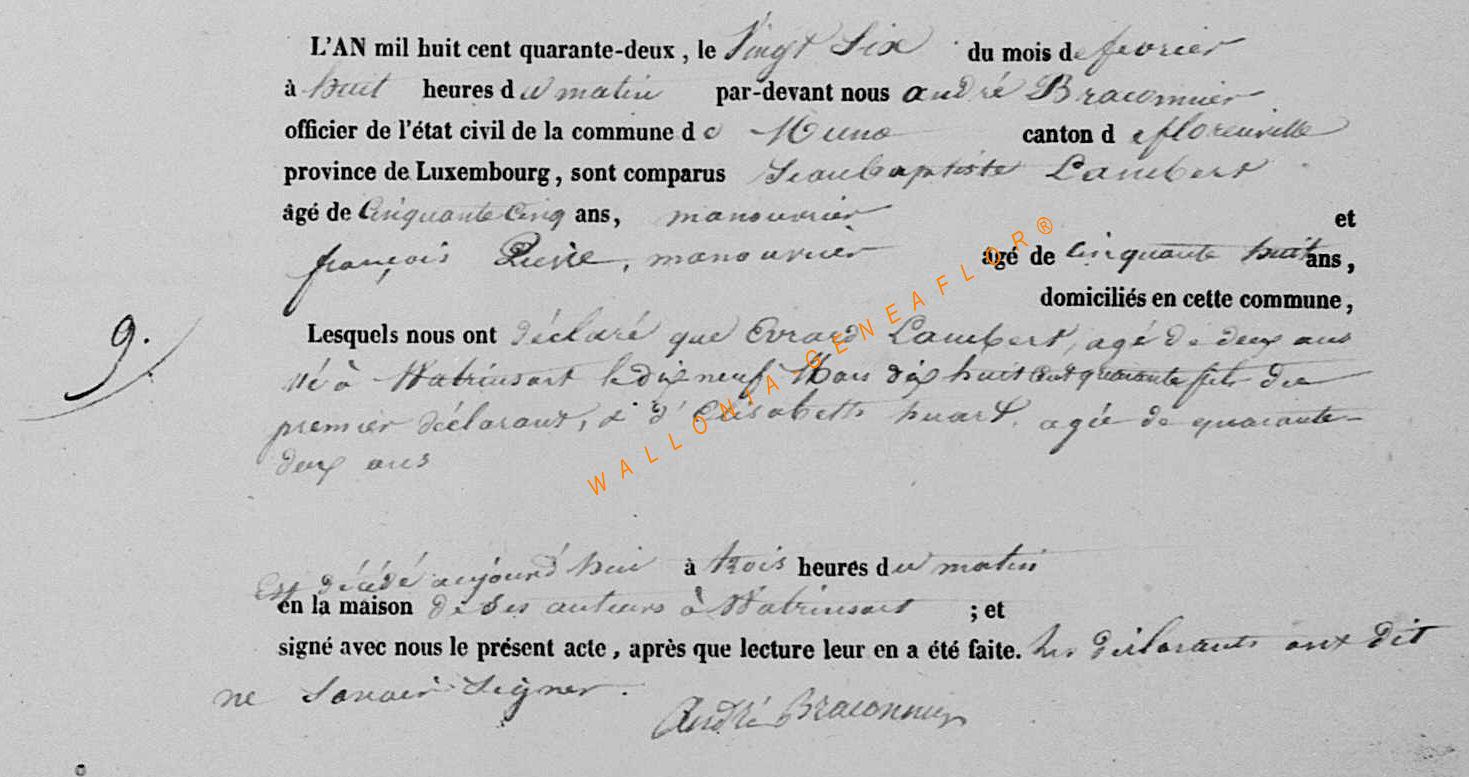 L'AN mil huit cent quarante-deux, le Vingt Six du mois de fevrier
à huit heures du matin par-devant nous andré Braconnier
officier de l'état civil de la commune de Muno canton de florenville
province de Luxembourg, sont comparus Jeanbaptiste Lambert
âgé de Cinquante Cinq ans, manouvrier et
françois Pierre, manouvrier agé de Cinquante huit ans,
domiciliés en cette commune,
9.
Lesquels nous ont déclaré que Evrard Lambert, agé de deux ans
né à Watrinsart le dix neuf Mars dix huit cent quarante fils du
premier déclarant, & d'Elisabeth huart. agée de quarante-
deux ans
Est décédé aujourd'hui à trois heures du matin
en la maison de ses auteurs à Watrinsart ; et
signé avec nous le présent acte, après que lecture leur en a été faite. les déclarants ont dit
ne Savoir Signer.
André Braconnier
WALLONIA-GENEAFLOR®